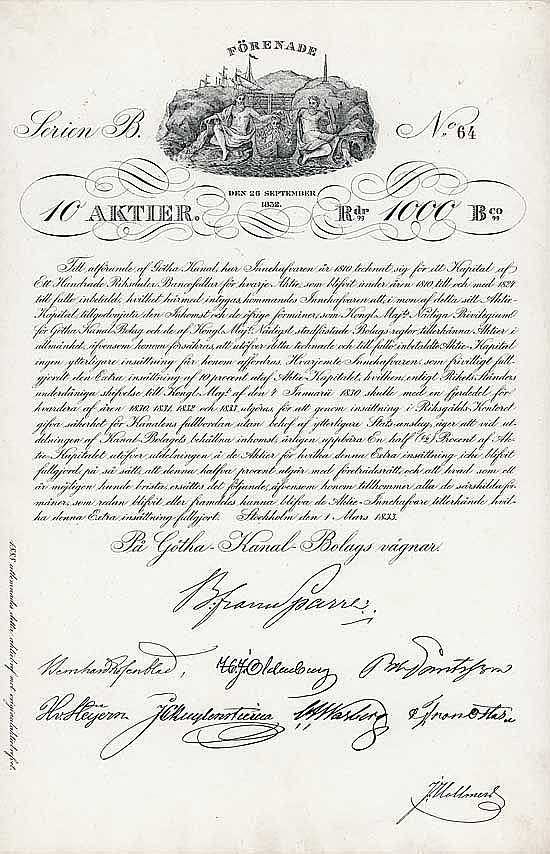 FÖRENADE
Serien B. No. 64
DEN 26 SEPTEMBER
1832.
10 AKTIER. Rdr 1000 Bco
Till utförande af Götha Kanal, har Innehafvaren år 1810 technat sig för ett Kapital af
Ett Hundrade Riksdaler Banco för hvarje Aktie, som blifvit under åren 1810 till och med 1824
till fullo inbetald, hvilket härmed intygas, kommandes Innehafvaren att, i mon af detta sitt Aktie-
Kapital, tillgodnjuta den Inkomst och de öfrige förmåner, som Kongl. Majts Nådiga Privilegium
för Götha Kanal Bolag och de af Kongl. Majt Nådigst stadfästade Bolagsreglor, tillerkänna Aktier i
allmänhet, äfvensom honom försäkras, att utöfver detta technade och till fullo inbetalta Aktie-Kapital
ingen ytterligare insättning får honom affordras. Hvarjemte Innehafvaren, som frivilligt full-
gjordt den Extra insättning af 10 procent utaf Aktie-Kapitalet, hvilken, enligt Rikets Ständers
underdåniga skrifvelse till Kongl. Majt af den 4 Januarii 1830 skulle med en fjerdedel för
hvardera af åren 1830, 1831, 1832 och 1833 utgöras, för att genom insättning i Riksgälds Kontoret
gifva säkerhet för Kanalens fullbordan utan behof af ytterligare Stats-anslag, eger att vid ut-
delningen af Kanal-Bolagets behållna inkomst, årligen uppbära En half (½) Procent af Ak-
tie-Kapitalet utöfver utdelningen å de Aktier för hvilka denna Extra insättning icke blifvit
fullgjord, på så sätt, att denna halfva procent utgår med företrädsrätt, och att hvad som ett
år möjligen kunde brista, ersättes det följande, äfvensom honom tillkommer alla de särskilda för-
måner, som redan blifvit eller framdeles kunna blifva de Aktie-Innehafvare tillerkände hvil-
ka denna Extra insättning fullgjort. Stockholm den 1 Mars 1833.
På Götha-Kanal-Bolags vägnar.
B. fran Sparre
Bernhard Rosenblad, Oldenburg
Hv. Heijern
J. Hallmers
1838 utlemnades detta aktiebref mot originalaktiebrefvet.